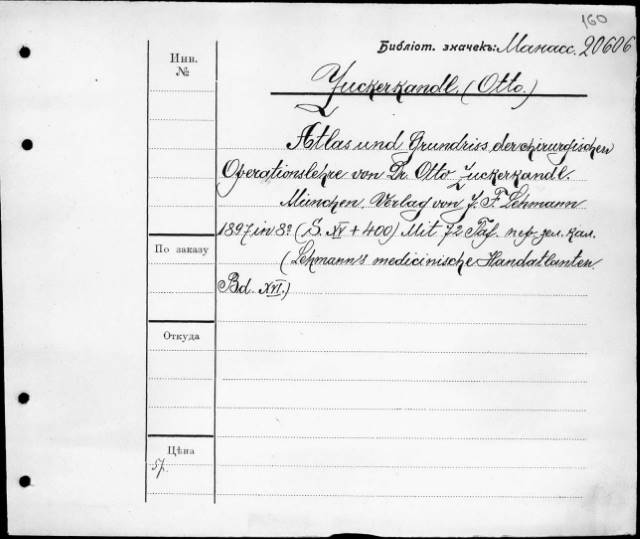 160
Библіот. значекъ: Манасс. 20606
Инв.
№
Zuckerkandl. (Otto.)
Atlas und Grundriss der chirurgischen
Operationslehre von Dr. Otto Zuckerkandl.
München. Verlag von J. F. Lehmann
1897 in 8º (S. XV + 400) Mit 72 Taf. пер. зел. кал.
По заказу
(Lehmann's medicinische Handatlanten.
Bd. XVI.)
Откуда
Цѣна
5р.